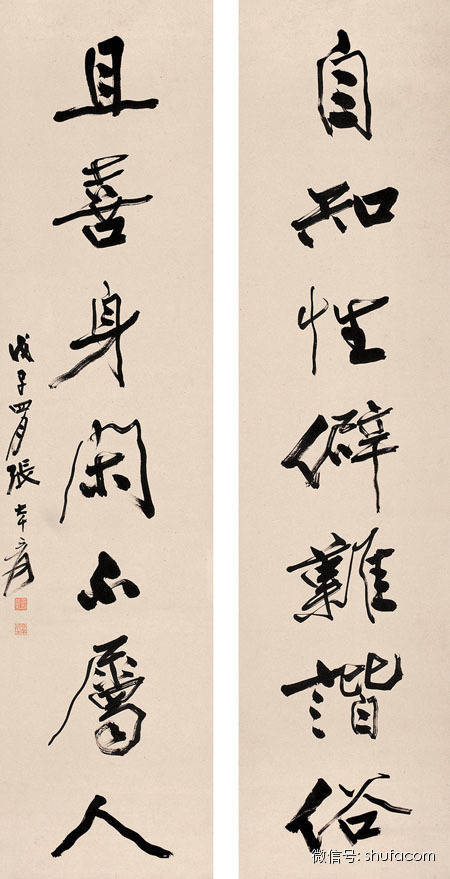 自知性僻難諧俗
且喜身閑不屬人
戊子四月張大千爰
微信号: shufacom